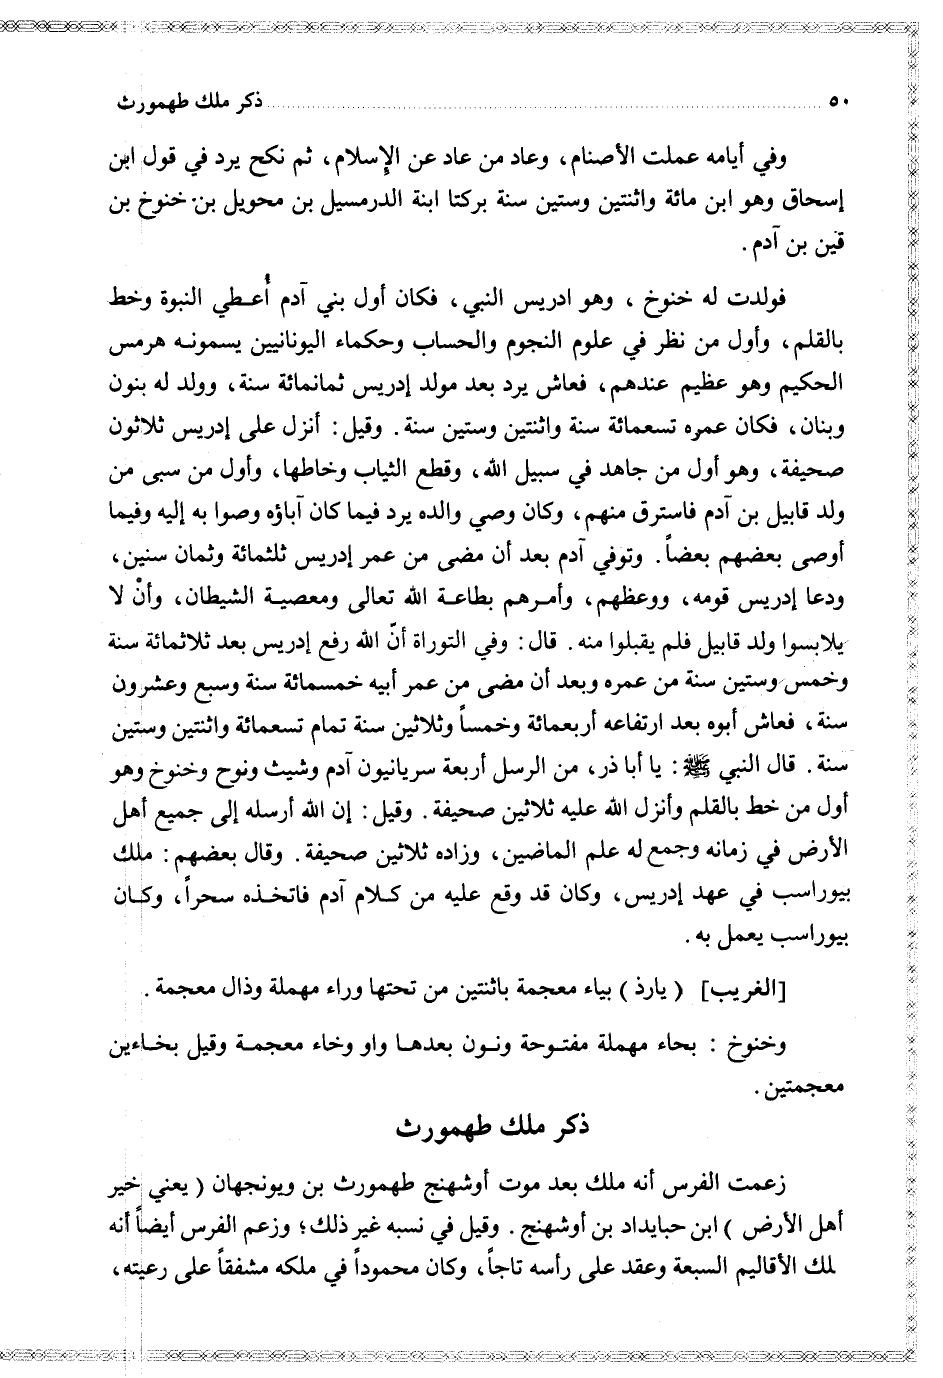 ٥٠ ........ ذكر ملك طهمورث
وفي أيامه عملت الأصنام، وعاد من عاد عن الإسلام، ثم نكح يرد في قول ابن
إسحاق وهو ابن مائة واثنتين وستين سنة بركتا ابنة الدرمسيل بن محويل بن خنوخ بن
قين بن آدم.
فولدت له خنوخ، وهو ادريس النبي، فكان أول بني آدم أُعطي النبوة وخط
بالقلم، وأول من نظر في علوم النجوم والحساب وحكماء اليونانيين يسمونه هرمس
الحكيم وهو عظيم عندهم، فعاش يرد بعد مولد إدريس ثمانمائة سنة، وولد له بنون
وبنان، فكان عمره تسعمائة سنة واثنتين وستين سنة. وقيل: أنزل على إدريس ثلاثون
صحيفة، وهو أول من جاهد في سبيل الله، وقطع الثياب وخاطها، وأول من سبى من
ولد قابيل بن آدم فاسترق منهم، وكان وصي والده يرد فيما كان آباؤه وصوا به إليه وفيما
أوصى بعضهم بعضاً. وتوفي آدم بعد أن مضى من عمر إدريس ثلثمائة وثمان سنين،
ودعا إدريس قومه، ووعظهم، وأمرهم بطاعة الله تعالى ومعصية الشيطان، وأنْ لا
يلابسوا ولد قابيل فلم يقبلوا منه. قال: وفي التوراة أنّ الله رفع إدريس بعد ثلاثمائة سنة
وخمس وستين سنة من عمره وبعد أن مضى من عمر أبيه خمسمائة سنة وسبع وعشرون
سنة، فعاش أبوه بعد ارتفاعه أربعمائة وخمساً وثلاثين سنة تمام تسعمائة واثنتين وستين
سنة. قال النبي ﷺ: يا أبا ذر، من الرسل أربعة سريانيون آدم وشيث ونوح وخنوخ وهو
أول من خط بالقلم وأنزل الله عليه ثلاثين صحيفة. وقيل: إن الله أرسله إلى جميع أهل
الأرض في زمانه وجمع له علم الماضين، وزاده ثلاثين صحيفة. وقال بعضهم: ملك
بيوراسب في عهد إدريس، وكان قد وقع عليه من كلام آدم فاتخذه سحراً، وكان
بيوراسب يعمل به.
[الغريب] ( يارذ ) بياء معجمة باثنتين من تحتها وراء مهملة وذال معجمة.
وخنوخ : بحاء مهملة مفتوحة ونون بعدها واو وخاء معجمة وقيل بخاءين
معجمتين.
ذكر ملك طهمورث
زعمت الفرس أنه ملك بعد موت أوشهنج طهمورث بن ويونجهان ( يعني خير
أهل الأرض ) ابن حبايداد بن أوشهنج. وقيل في نسبه غير ذلك؛ وزعم الفرس أيضاً أنه
لك الأقاليم السبعة وعقد على رأسه تاجاً، وكان محموداً في ملكه مشفقاً على رعيته،